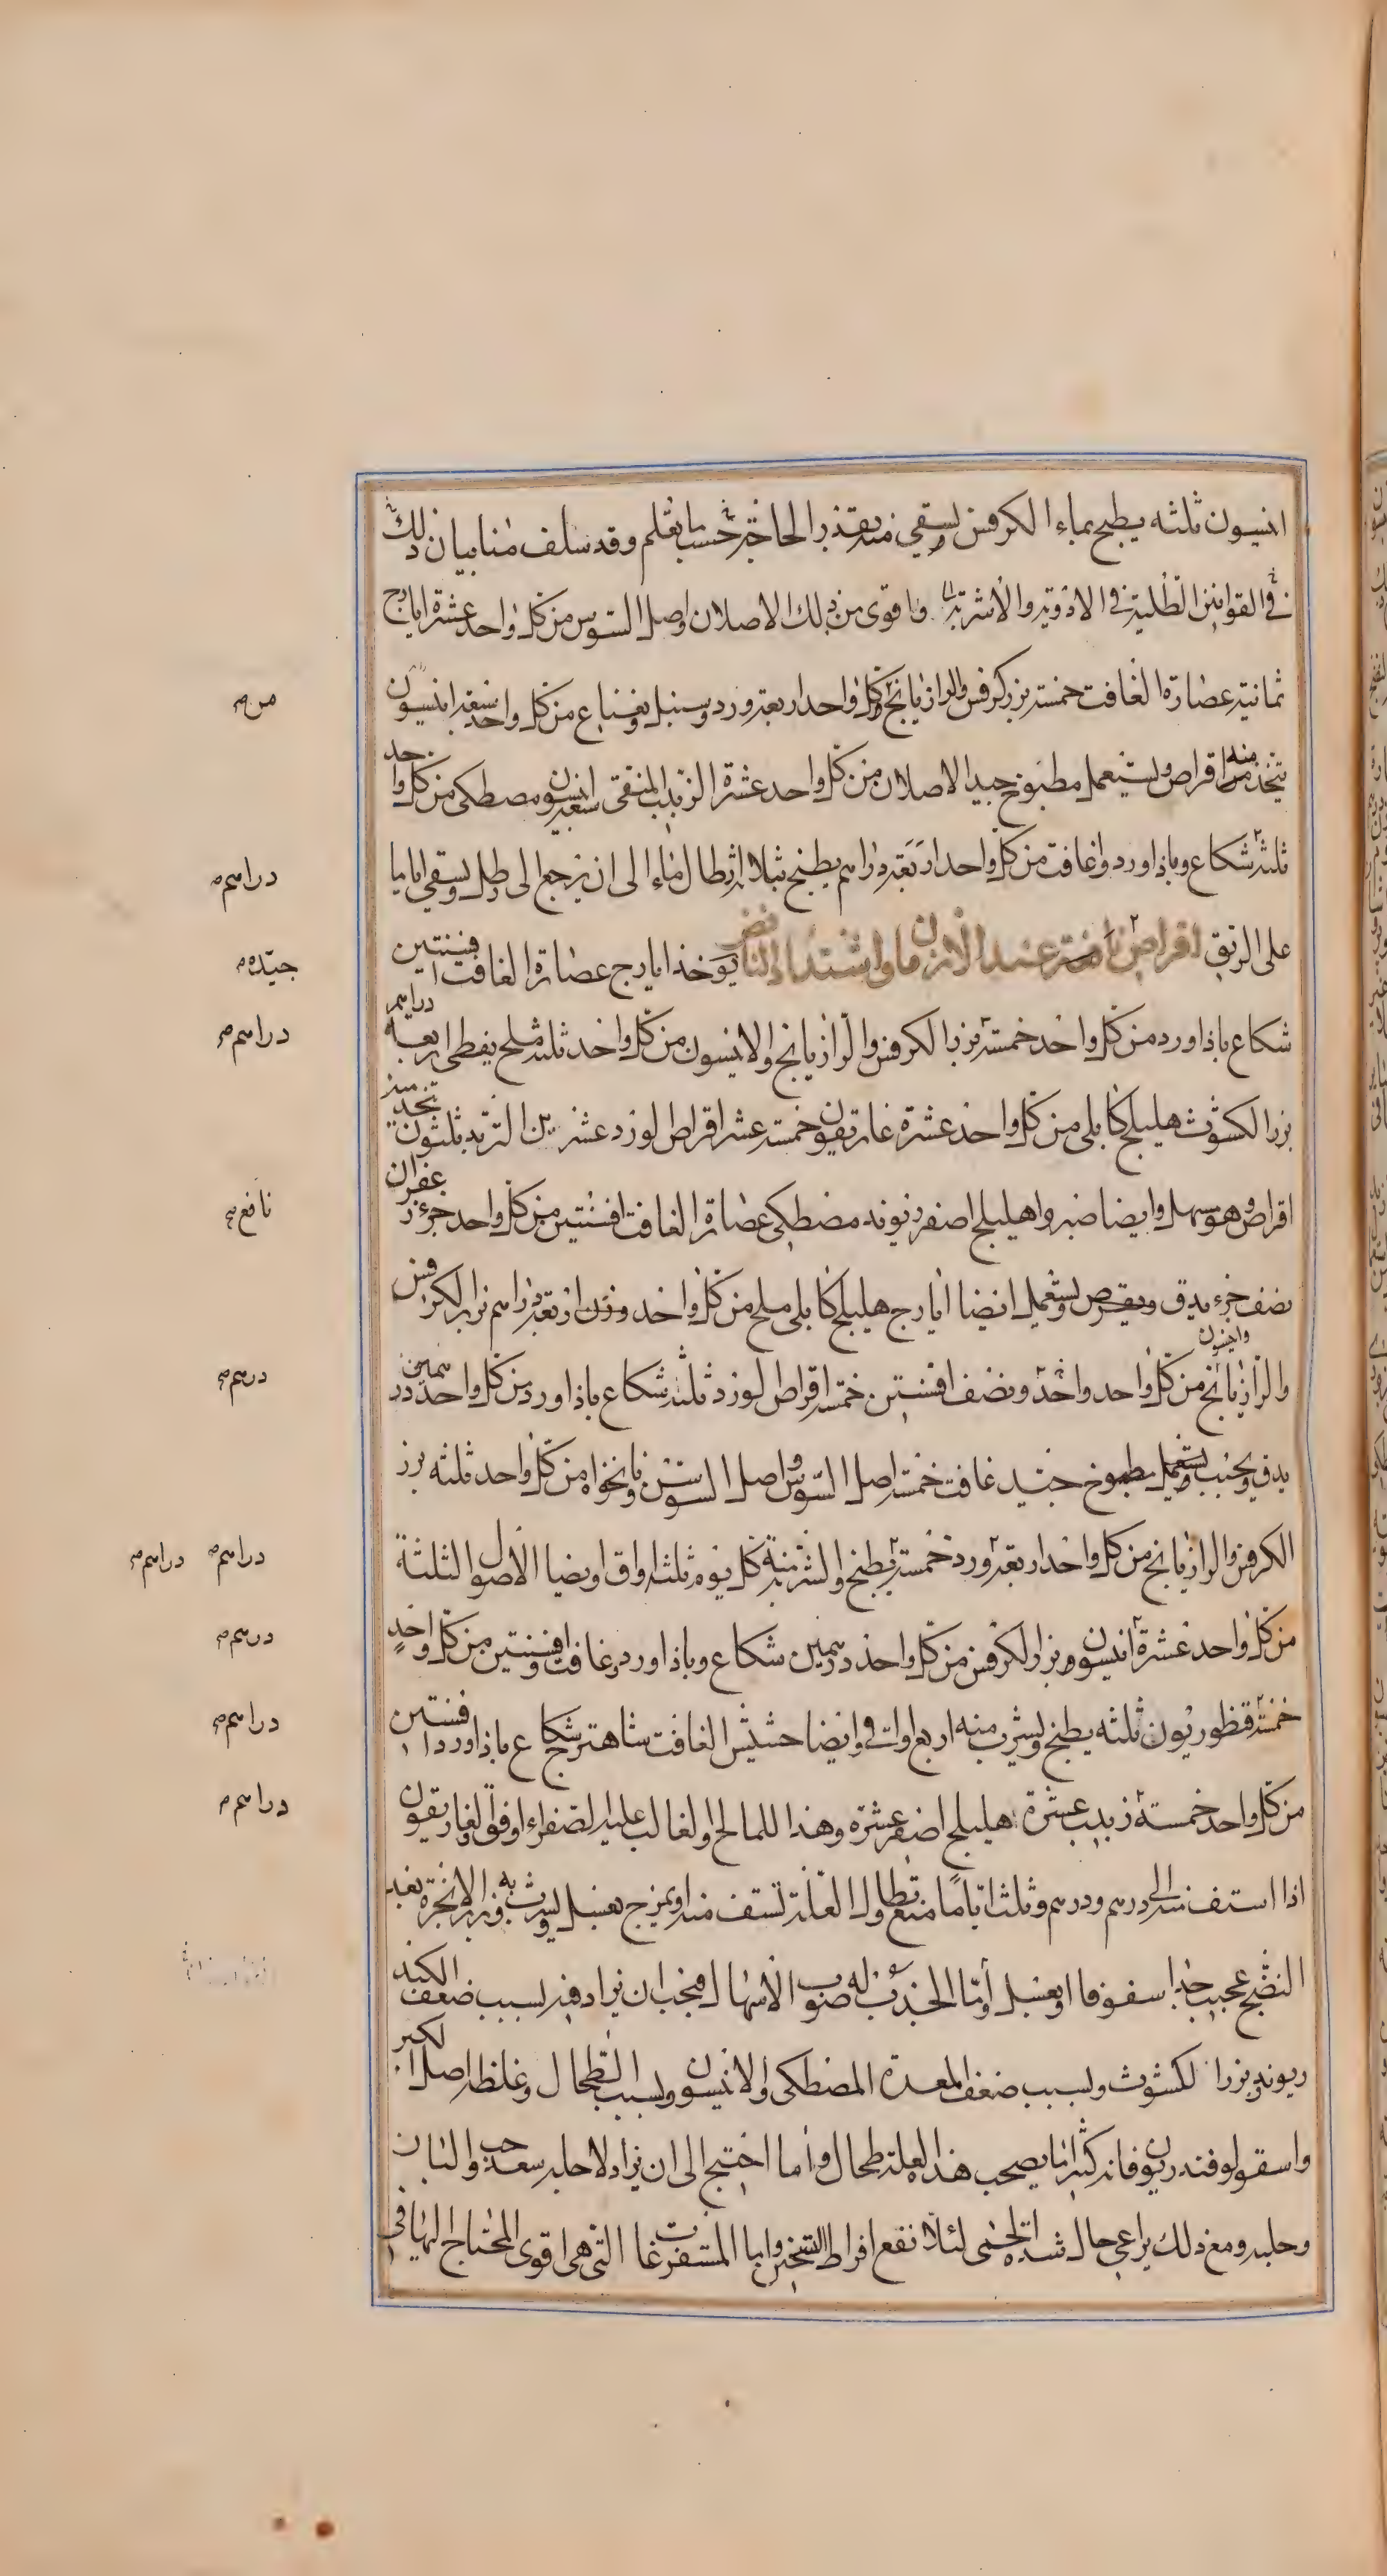 انيسون ثلثه يطبخ بماء الكرفس ويسقي منه بقدر الحاجة حسب ما يعلم وقد سلف منا بيان ذلك
في القوانين الطلية في الادوية والاشربة واقوى من ذلك الاصلان واصل السوس من كل واحد عشرة ايارج
ثمانية عصارة الغافت خمسة بزر كرفس والرازيانج من كل واحد اربعة ورد وسنبل ونعناع من كل واحد سبعة انيسون
يتخذ منه اقراص ويستعمل مطبوخ جيد الاصلان من كل واحد عشرة الزبيب المنقى سبعة انيسون ومصطكى من كل واحد
ثلثة شكاع وباذاورد وغافت من كل واحد اربعة دراهم يطبخ بثلاثة ارطال ماء الى ان يرجع الى رطل ويسقي اياما
على الريق اقراص نافعة عند الازمان واشتداد النافض يوخذ ايارج عصارة الغافت افسنتين
شكاع باذاورد من كل واحد خمسة بزر الكرفس والرازيانج والانيسون من كل واحد ثلثة ملح نفطي اربعة دراهم
بزر الكشوث هليلج كابلي من كل واحد عشرة غاريقون خمسة عشر اقراص الورد عشرين التربد ثلثون يتخذ منه
اقراص وهو مسهل وايضا صبر واهليلج اصفر ريوند مصطكى عصارة الغافت افسنتين من كل واحد جزء زعفران
نصف جزء يدق ويقرص ويستعمل ايضا ايارج هليلج كابلي ملح من كل واحد وزن اربعة دراهم بزر الكرفس
والرازيانج وانيسون من كل واحد واحد ونصف افسنتين خمسة اقراص الورد ثلثة شكاع باذاورد من كل واحد درهمين
يدق ويحبب ويستعمل مطبوخ جيد غافت خمسة اصل السوس واصل السوسن ونانخواه من كل واحد ثلثه بزر
الكرفس والرازيانج من كل واحد اربعة ورد خمسة يطبخ والشربة منه كل يوم ثلثة اواق وايضا الاصول الثلثة
من كل واحد عشرة انيسون وبزر الكرفس من كل واحد درهمين شكاع وباذاورد وغافت وافسنتين من كل واحد
خمسة قنطوريون ثلثه يطبخ ويشرب منه اربع اواق وايضا حشيش الغافت شاهترج شكاع باذاورد افسنتين
من كل واحد خمسة زبيب عشرة هليلج اصفر عشرة وهذا للمالح والغالب عليه الصفراء اوفق والغاريقون
اذا استف منه الى درهم ودرهم وثلث اياما منع تطاول العلة تستف منه او يمزج بعسل ويشرب به وبزر الانجرة بعد
النضج عجيب جدا سفوفا او بعسل واما الحذر له صوب الاسهال فيجب ان يزاد فيه لسبب ضعف الكبد
ريوند وبزر الكشوث ولسبب ضعف المعدة المصطكى والانيسون ولسبب الطحال وغلظه اصل الكبر
واسقولوفندريون فانه كثيرا ما يصحب هذه العلة طحال واما احتيج الى ان يزاد لاجله سعد وحب البان
وحلبه ومع ذلك يراعي حال شدة الحمى لئلا تقع افراط التسخين واما المستفرغات التي هي اقوى المحتاج اليها في
من
دراهم
جيّده
دراهم
نافع
درهم
دراهم دراهم
درهم
دراهم
دراهم